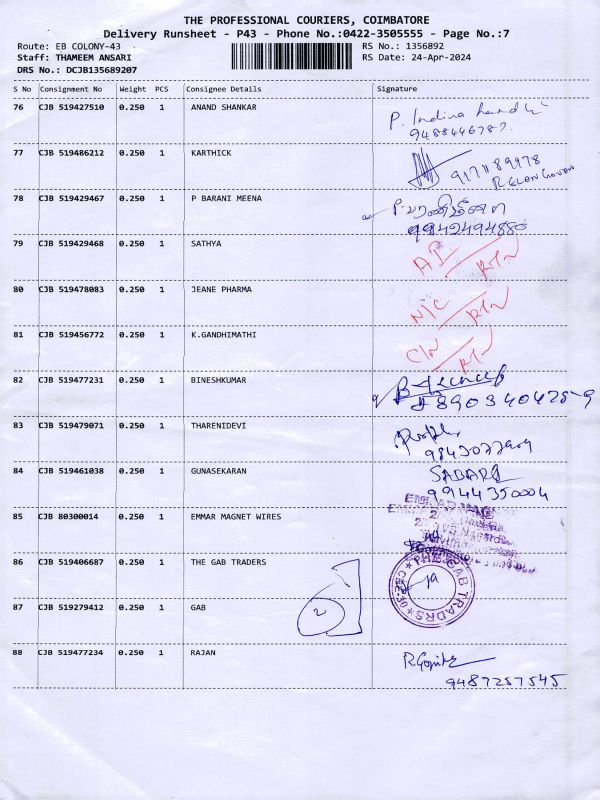 THE PROFESSIONAL COURIERS, COIMBATORE
Delivery Runsheet - P43 - Phone No.:0422-3505555 - Page No.:7
Route: EB COLONY-43
RS No.: 1356892
Staff: THAMEEM ANSARI
RS Date: 24-Apr-2024
DRS No.: DCJB135689207
S No Consignment No Weight PCS Consignee Details Signature
76 CJB 519427510 0.250 1 ANAND SHANKAR
P. Indira
77 CJB 519486212 0.250 1 KARTHICK
R.ELANGOVAN
78 CJB 519429467 0.250 1 P BARANI MEENA
9942494880
79 CJB 519429468 0.250 1 SATHYA
RTN
80 CJB 519478083 0.250 1 JEANE PHARMA
N/C RTN
81 CJB 519456772 0.250 1 K.GANDHIMATHI
RTN
82 CJB 519477231 0.250 1 BINESHKUMAR
83 CJB 519479071 0.250 1 THARENIDEVI
84 CJB 519461038 0.250 1 GUNASEKARAN
9944350004
85 CJB 80300014 0.250 1 EMMAR MAGNET WIRES
86 CJB 519406687 0.250 1 THE GAB TRADERS
THE GAB TRADRS
87 CJB 519279412 0.250 1 GAB
2
88 CJB 519477234 0.250 1 RAJAN
9487257545